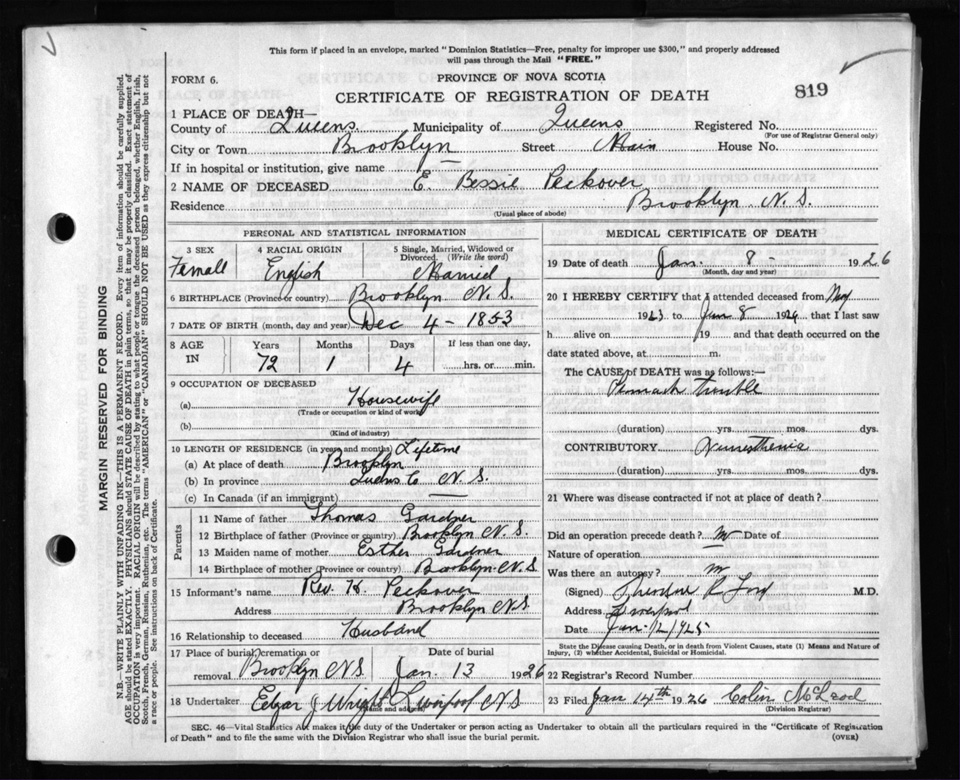 This form if placed in an envelope, marked "Dominion Statistics—Free, penalty for improper use $300," and properly addressed
will pass through the Mail "FREE."
FORM 6.
PROVINCE OF NOVA SCOTIA
CERTIFICATE OF REGISTRATION OF DEATH
819
1 PLACE OF DEATH—
County of Queens Municipality of Queens Registered No.
(For use of Registrar General only)
City or Town Brooklyn Street Main House No.
If in hospital or institution, give name
2 NAME OF DECEASED E. Bessie Peckover
Residence Brooklyn N. S.
(Usual place of abode)
PERSONAL AND STATISTICAL INFORMATION
3 SEX
Femall
4 RACIAL ORIGIN
English
5 Single, Married, Widowed or
Divorced. (Write the word)
Married
6 BIRTHPLACE (Province or country) Brooklyn N. S.
7 DATE OF BIRTH (month, day and year) Dec 4 - 1853
8 AGE
IN
Years Months Days If less than one day,
72 1 4 hrs. or min.
9 OCCUPATION OF DECEASED
(a) Housewife
(Trade or occupation or kind of work)
(b)
(Kind of industry)
10 LENGTH OF RESIDENCE (in years and months) Lifetime
(a) At place of death Brooklyn
(b) In province Queens Co N. S.
(c) In Canada (if an immigrant)
Parents
11 Name of father Thomas Gardner
12 Birthplace of father (Province or country) Brooklyn N. S.
13 Maiden name of mother Esther Gardner
14 Birthplace of mother (Province or country) Brooklyn N. S
15 Informant's name Rev. H. Peckover
Address Brooklyn N S.
16 Relationship to deceased Husband
17 Place of burial, cremation or Date of burial
removal Brooklyn N S. Jan. 13 1926
18 Undertaker Edgar J Wright Liverpool N S
(Name and address)
MEDICAL CERTIFICATE OF DEATH
19 Date of death Jan. 8 - 1926
(Month, day and year)
20 I HEREBY CERTIFY that I attended deceased from Nov
1923 to Jan 8 1926 that I last saw
h alive on 19 and that death occurred on the
date stated above, at m.
The CAUSE of DEATH was as follows:—
Stomach trouble
(duration) yrs. mos. dys.
CONTRIBUTORY Neurasthenia
(duration) yrs. mos. dys.
21 Where was disease contracted if not at place of death?
Did an operation precede death? no Date of
Nature of operation
Was there an autopsy? no
(Signed) Theodore R Ford M.D.
Address Liverpool
Date Jan. 12/1925
State the Disease causing Death, or in death from Violent Causes, state (1) Means and Nature of
Injury, (2) whether Accidental, Suicidal or Homicidal.
22 Registrar's Record Number
23 Filed Jan 14th 1926 Colin McLeod
(Division Registrar)
SEC. 46—Vital Statistics Act makes it the duty of the Undertaker or person acting as Undertaker to obtain all the particulars required in the "Certificate of Registration
of Death" and to file the same with the Division Registrar who shall issue the burial permit. (OVER)
MARGIN RESERVED FOR BINDING
N.B.—WRITE PLAINLY WITH UNFADING INK—THIS IS A PERMANENT RECORD. Every item of information should be carefully supplied.
AGE should be stated EXACTLY. PHYSICIANS should STATE CAUSE OF DEATH in plain terms, so that it may be properly classified. Exact statement of
OCCUPATION is very important. RACIAL ORIGIN will be described by stating to what people or tongue the deceased person belonged, whether English, Irish,
Scotch, French, German, Russian, Ruthenian, etc. The terms "AMERICAN" or "CANADIAN" SHOULD NOT BE USED as they express citizenship but not
a race or people. See instructions on back of Certificate.